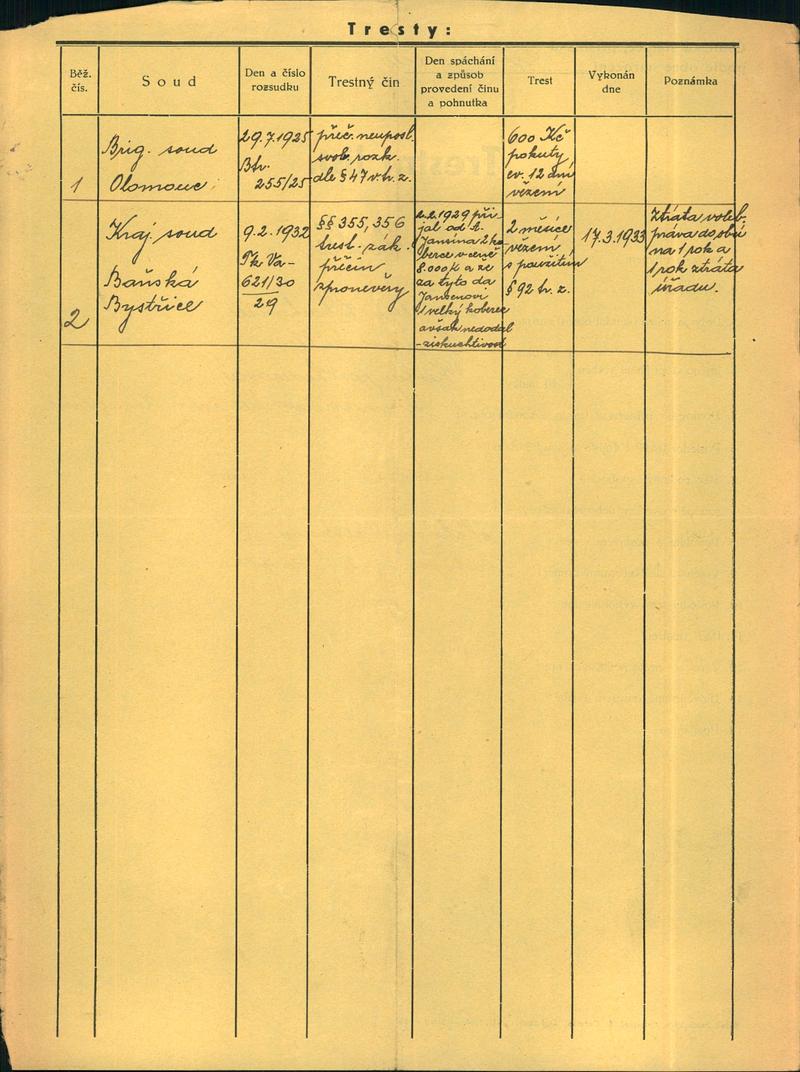 Tresty:
Běž. čís.
Soud
Den a číslo rozsudku
Trestný čin
Den spáchání a způsob provedení činu a pohnutka
Trest
Vykonán dne
Poznámka
1
Brig. soud
Olomouc
29.7.1925
Btr.
255/25
přeč. neuposl.
rozk.
dle § 47 v. tr. z.
600 Kč
pokuty
ev. 12 dní
vězení
2
Kraj. soud
Baňská
Bystřice
9.2.1932
Tk Va-
621/30
29
§§ 355, 356
trest. zák.
přečin
zpronevěry
2.2.1929 při-
jal od
2 ko-
berce v ceně
8.000 Kč a že
za tyto dá
Jansenovi
1 velký koberec
avšak nedodal
- ziskuchtivost
2 měsíce
vězení
s použitím
§ 92 tr. z.
17.3.1933
ztráta voleb.
práva do obcí
na 1 rok a
1 rok ztráta
úřadu.